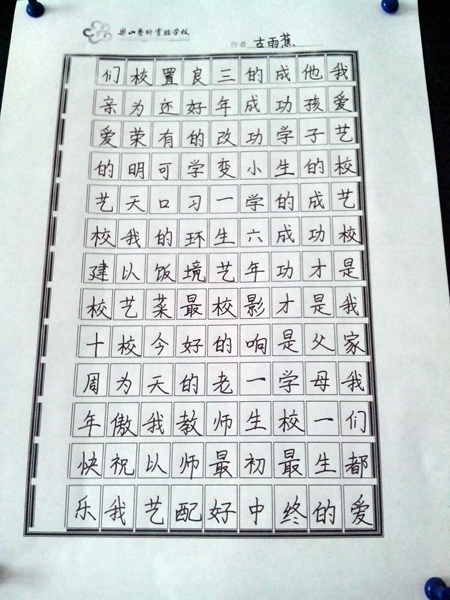 作者 古雨蕉
我爱艺校艺校是我家我们都爱
他孩子的成功才是父母一生的
成功学生的成功才是学校最终
的成功小学六年影响一生初中
三年改变一生艺校的老师最好
良好的学习环境最好的教师配
置还有可口的饭菜今天我以艺
校为荣明天我以艺校为傲祝我
们亲爱的艺校建校十周年快乐